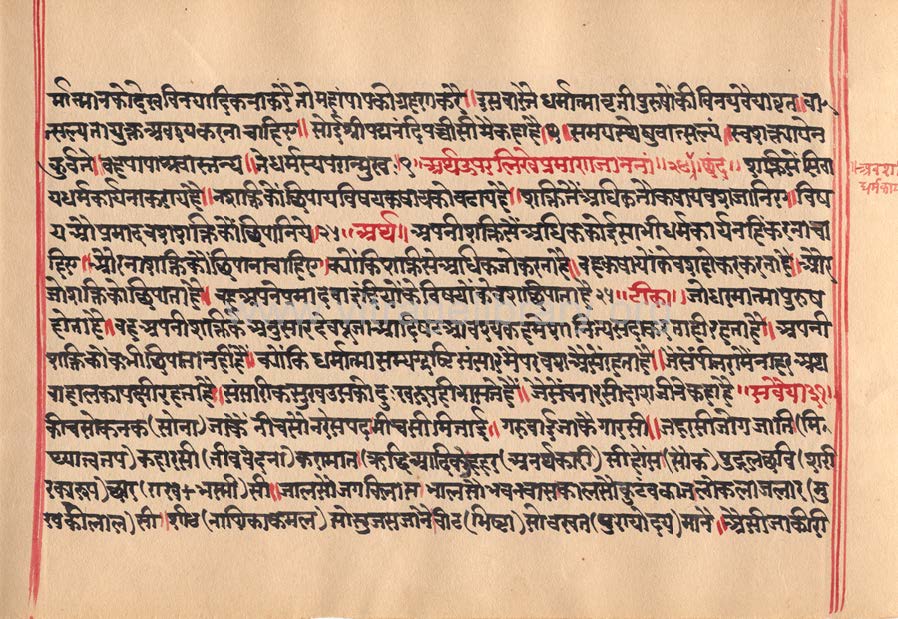 र्मात्मानको देख विनयादिक नाकरै सो महांपापको ग्रहण करै॥ इसवास्ते धर्मात्मा व्रती पुरुषोंकी विनय वैयाव्रत॥ वा
त्सल्यतायुक्त अवश्य करना चाहिए॥ सोई श्री पद्मनंदि पच्चीसी में कहा है॥ १॥ समयस्थेषु वात्सल्यं॥ स्वशक्त्या ये न
कुर्वते॥ बहुपापाप्रवात्मन्य॥ ते धर्मस्य परान्मुख॥ ९॥ अर्थ उपर लिखे प्रमाण जानना॥ २४॥ छंद॥ शक्तिसे सिवा
य धर्मकार्य नाकराये है॥ न शक्तिको छिपाय विषय कषायको बढाये है॥ शक्तितें अधिक तौ कषायवश जानिए॥ विष
य औ प्रमादवश शक्तिकों छिपानिये॥ २५॥ अर्थ॥ अपनी शक्तिसें अधिक कोई साभी धर्मकार्य नहिं करना चा
हिए॥ और ना शक्तिकों छिपाना चाहिए॥ क्योंकि शक्तिसे अधिक जो करता है॥ वह कषायोंके वश होकर करता है॥ और
जो शक्तिको छिपाता है॥ वह अपने प्रमाद वा इंद्रियोंके विषयोंके वश छिपाता है २५॥ टीका॥ जो धर्मात्मा पुरुष
होता है॥ वह अपनी शक्तिके अनुसार देवपूजा आदि षट् आवश्यकमें हमेशा सैन्य सदलता ही रहता है॥ अपनी
शक्तिको कभी छिपाता नहीं है॥ क्योंकि धर्मात्मा सम्यग्दृष्टि संसारमें परवश औसें रहता है॥ जैसें पींजरामें नाहर अथ
वा हालका पक्षी रहता है॥ संसारीक सुख उसको दुःखरूप ही भासते है॥ जैसें बनारसीदाशजीने कहा है॥ सवैया ३१॥
कीचसो कनक (सोना) जांकें नीचसो नरेसपद मीचसी मिताई॥ गरुवाई जाकै गारसी॥ जहरसी जोग जाति (मि
थ्यात्व तप) कहारसी (तीव्र वेदना) करामात (ऋद्धि आदिक) हहर (अनर्थकारी) सी हौस (सौक) पुद्गल छवि (शरी
रका रूप) छार (राख + भस्मी) सी॥ जालसो जगबिलास॥ भालसो भवनवास कालसो कुटंबकाज लोकलाज लार (मु
खकी लाल) सी सीठ (नासिका कमल) सो सुजस जाने बीठ (भिष्टा) सो वखत (पुण्योदय) मानै॥ औसी जाकी री